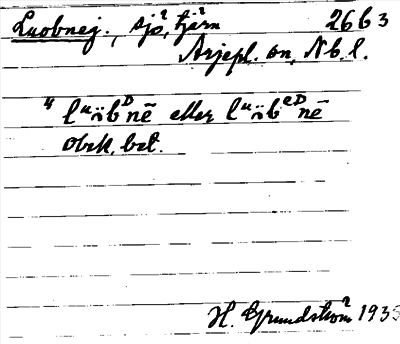 Luobnej., sjö?, tjärn? 2663
Arjepl. sn, Nb. l.
4 lᵘöbᴰnē eller lᵘöbᵉᴰnē
obek. bet.
H. Grundström 1935